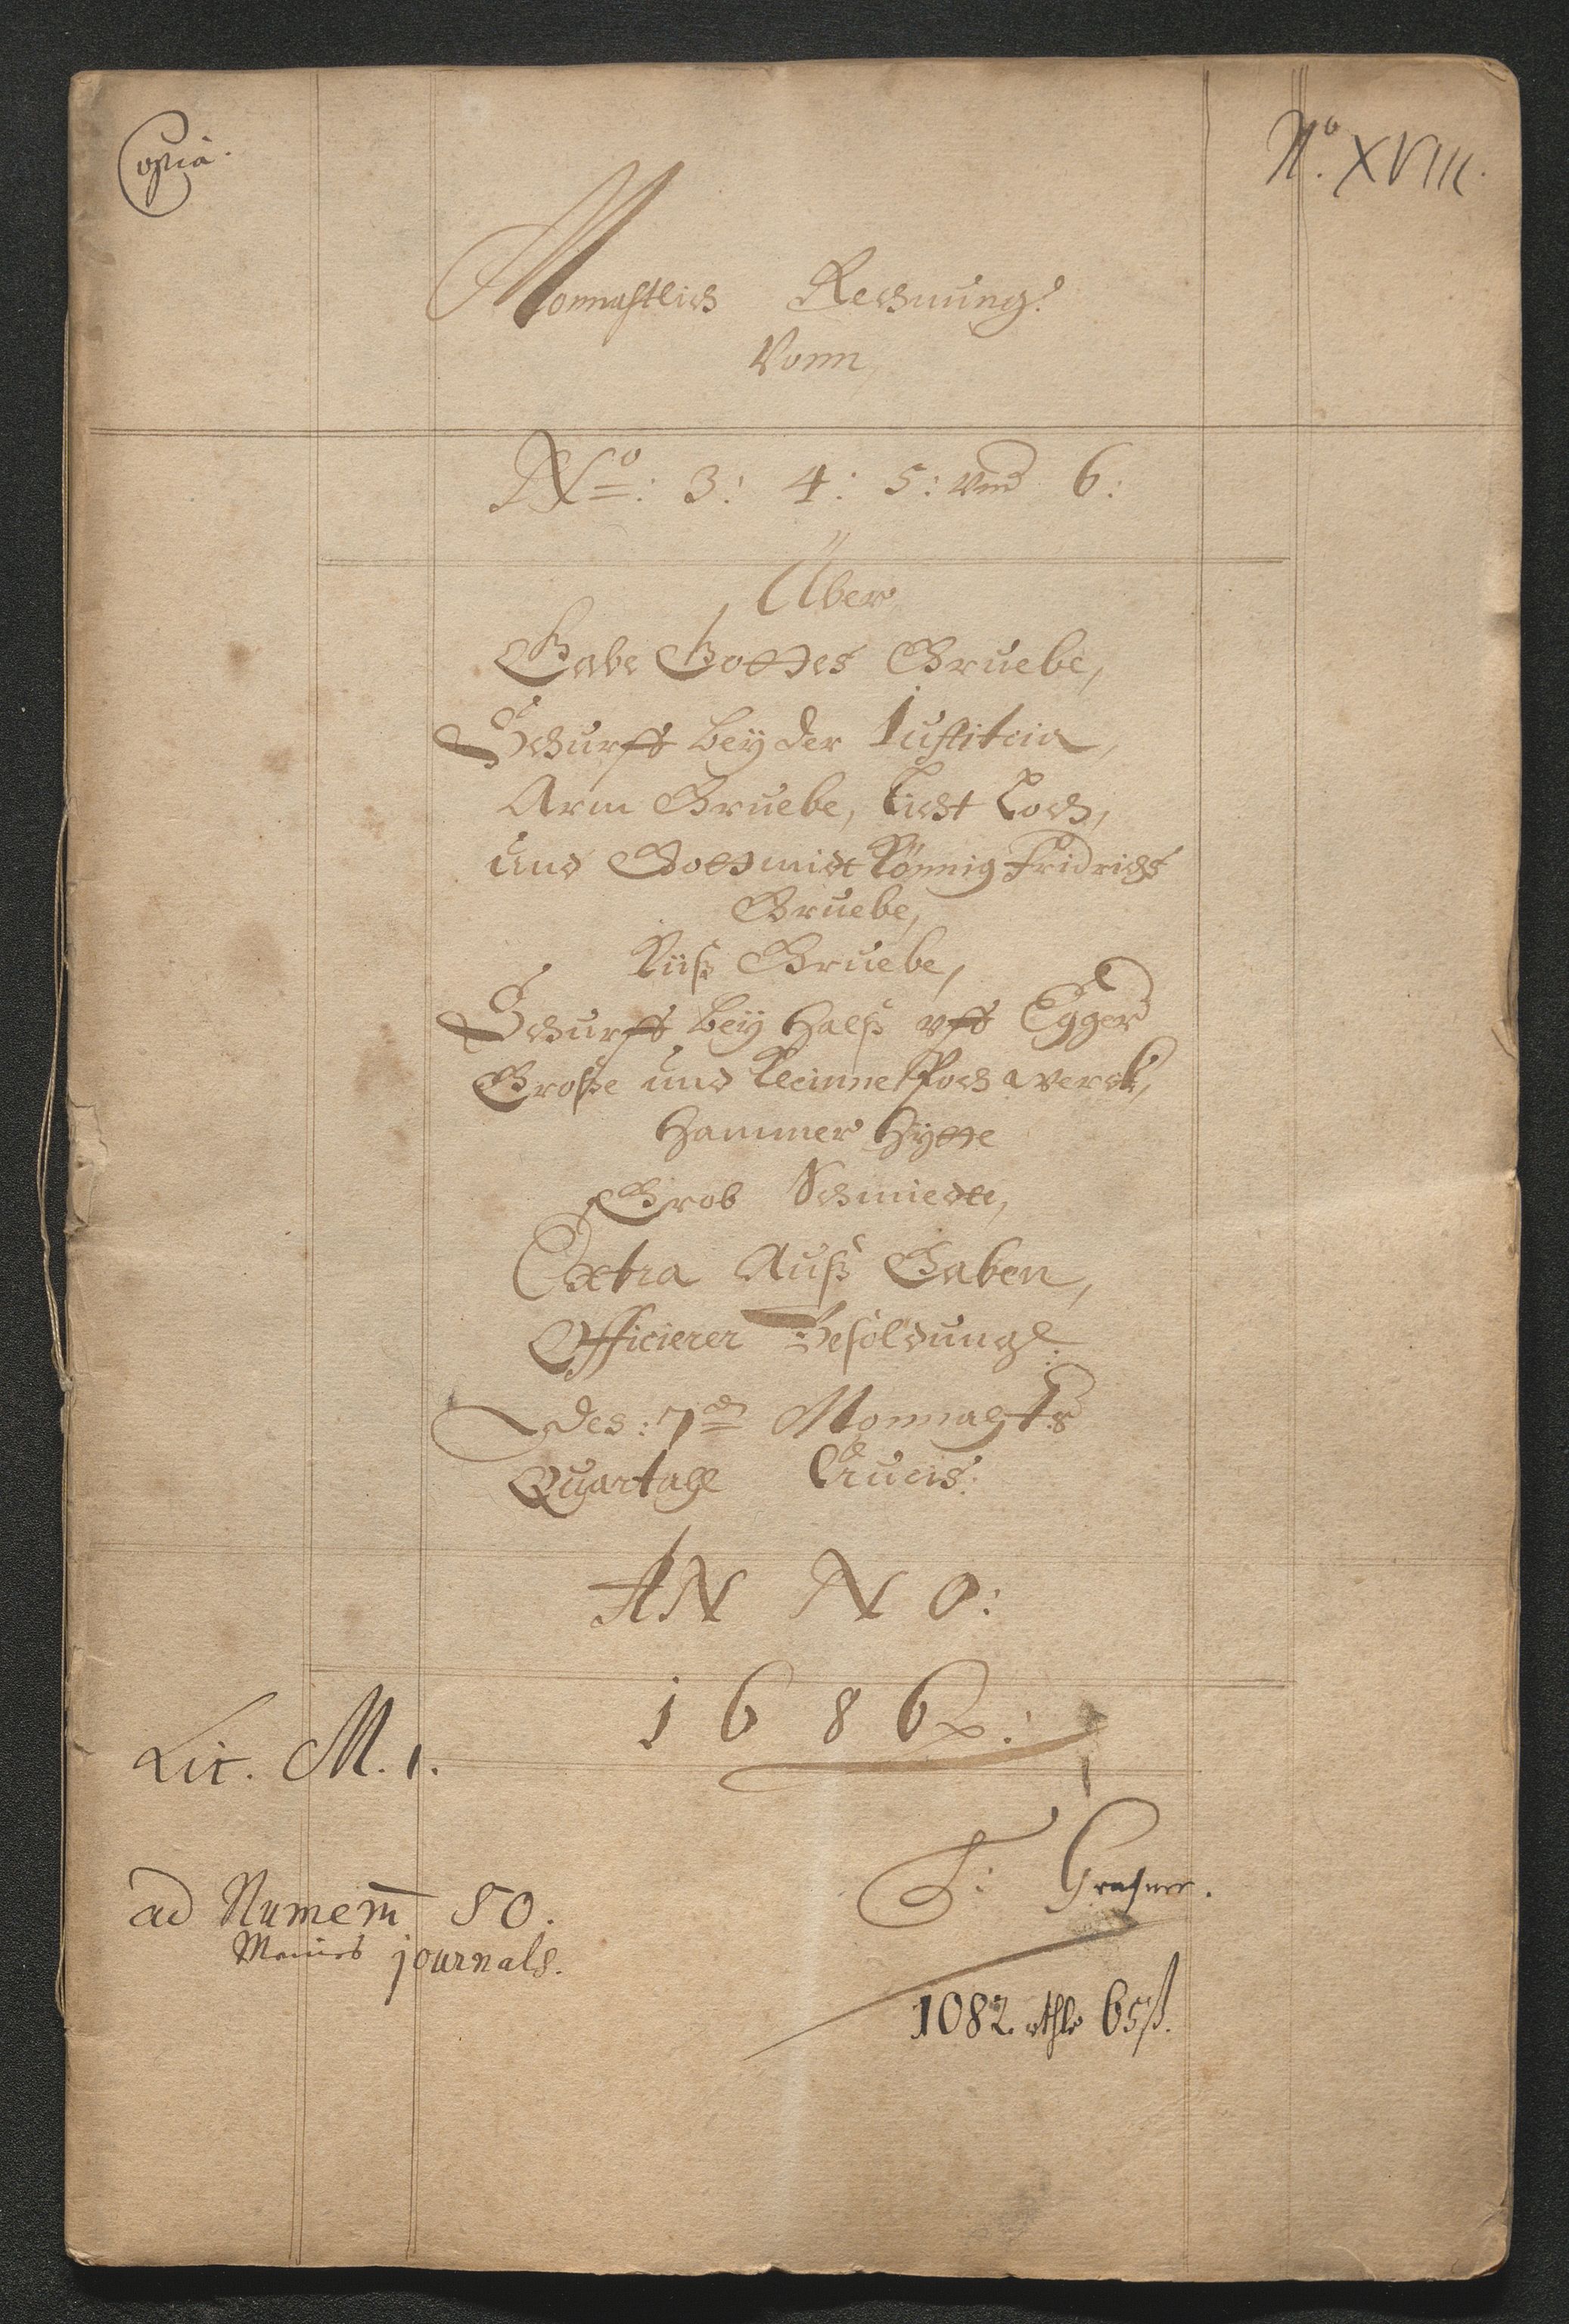 Copia.
No. XVIII.
Monnahtlich Rechnung.
Vonn
No: 3: 4: 5: Vnd 6:
Über
Gabe Gottes Gruebe,
Schurff beÿ der Justitcia,
Arm Gruebe, Licht Loch,
und Gottmidt Königg Fridrichs
Gruebe,
Küß Gruebe,
Schurff beÿ Halß vff Egger
Große und Kleinne Poch werck,
Hammer Hÿtte
Grob Schmiedte,
Extra Auß Gaben,
Officierer Besoldung.
Des: 7den Monnahts
Quartahl Crucis.
ANNO:
1686:
Lit. M. 1.
ad Numerm 50.
Meines journals.
1082. rthlr 65 ß.